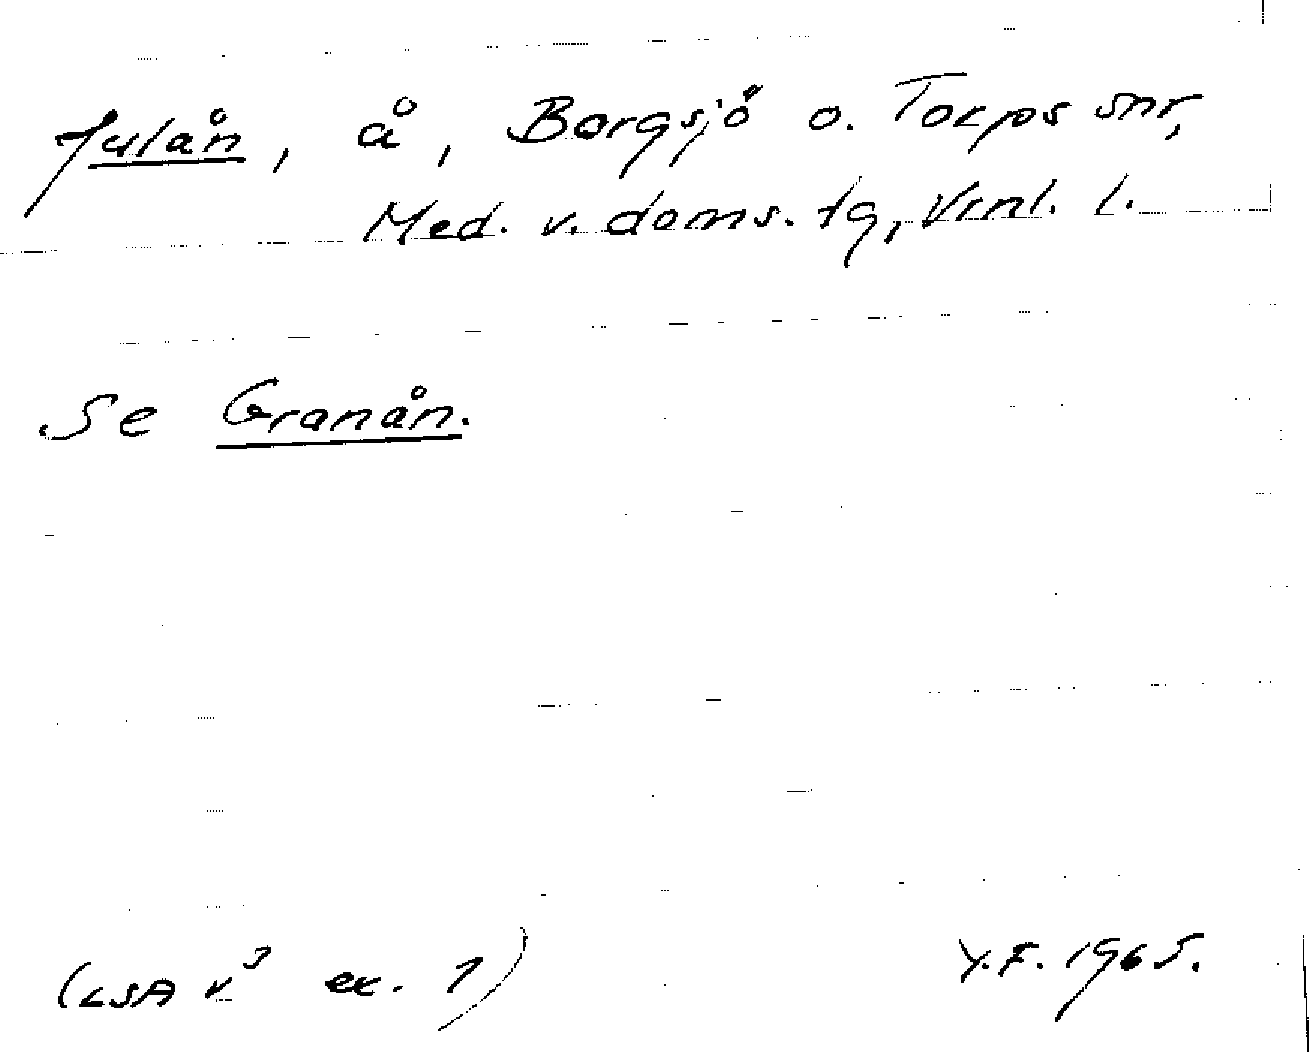 Julån, å, Borgsjö o. Torps snr,
Med. v. doms. tg, Vrnl. l.
Se Granån.
(LSA v³ ex. 1) Y.F. 1965.